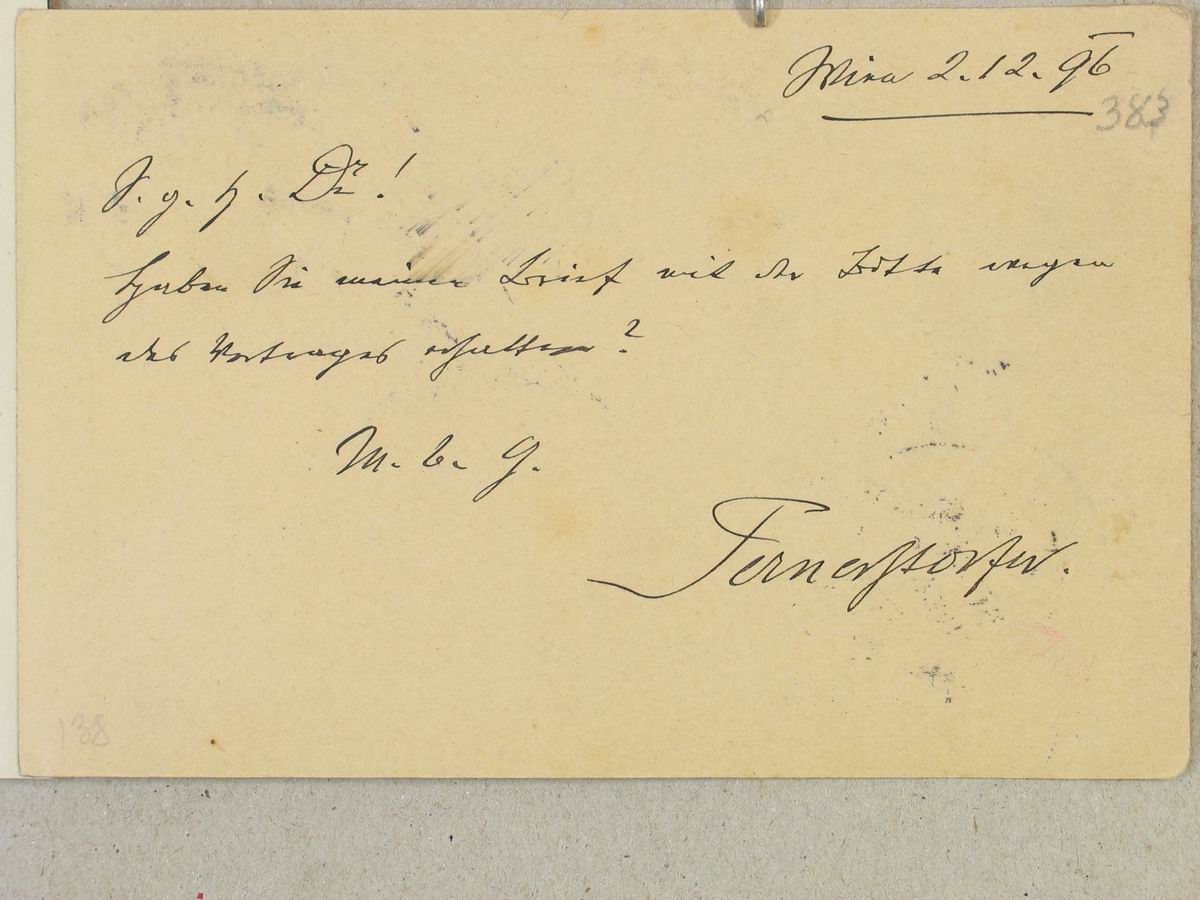 Wien 2.12.96
383
S. g. H. Dr!
Haben Sie meinen Brief mit der Bitte wegen
des Vortrages erhalten?
M. b. G.
Pernerstorfer.
138